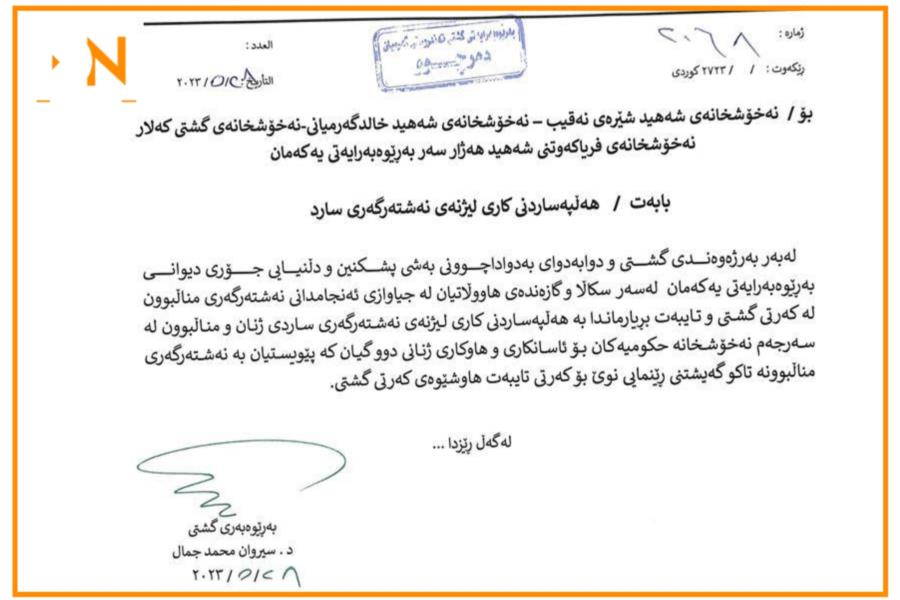 ژمارە : ٢٠٦٨
العدد :
ڕێکەوت : / / ٢٧٢٣ کوردی
التاريخ : ٢٠٢٣/٥/٢٨
N
بۆ / نەخۆشخانەی شەهید شێرەی نەقیب – نەخۆشخانەی شەهید خالدگەرمیانی-نەخۆشخانەی گشتی کەلار
نەخۆشخانەی فریاکەوتنی شەهید هەژار سەر بەڕێوەبەرایەتی یەکەمان
بابەت / هەڵپەساردنی کاری لیژنەی نەشتەرگەری سارد
لەبەر بەرژەوەندی گشتی و دوابەدوای بەدواداچوونی بەشی پشکنین و دڵنیایی جۆری دیوانی
بەڕێوەبەرایەتی یەکەمان لەسەر سکاڵا و گازندەی هاووڵاتیان لە جیاوازی ئەنجامدانی نەشتەرگەری مناڵبوون
لە کەرتی گشتی و تایبەت بڕیارماندا بە هەڵپەساردنی کاری لیژنەی نەشتەرگەری ساردی ژنان و مناڵبوون لە
سەرجەم نەخۆشخانە حکومیەکان بۆ ئاسانکاری و هاوکاری ژنانی دووگیان کە پێویستیان بە نەشتەرگەری
مناڵبوونە تاکو گەیشتنی ڕێنمایی نوێ بۆ کەرتی تایبەت هاوشێوەی کەرتی گشتی.
لەگەڵ ڕێزدا ...
بەڕێوەبەری گشتی
د . سیروان محمد جمال
٢٠٢٣/٥/٢٨